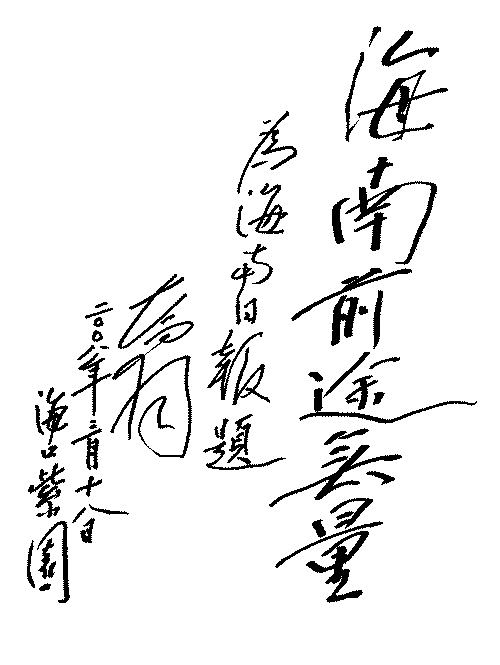 海南前途無量
為海南日報題
喬羽
二〇〇八年三月十八日
海口紫園